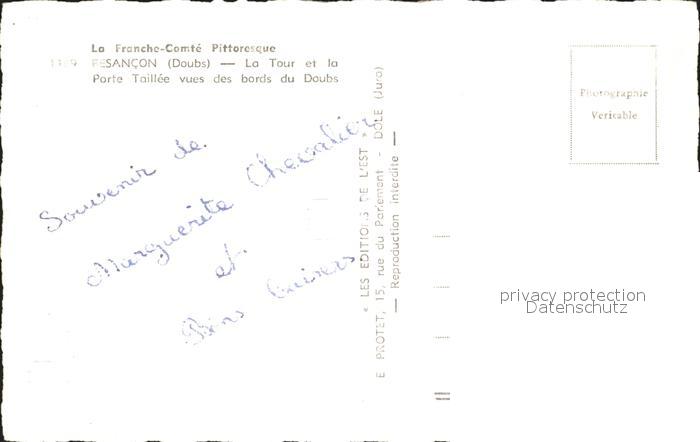 La Franche-Comté Pittoresque
BESANÇON (Doubs) — La Tour et la
Porte Taillée vues des bords du Doubs
Souvenir de
Marguerite Chevalier
et
Bons baisers
« LES EDITIONS DE L'EST »
E PROTET, 15, rue du Parlement - DOLE (Jura)
— Reproduction interdite —
Photographie
Véritable
privacy protection
Datenschutz